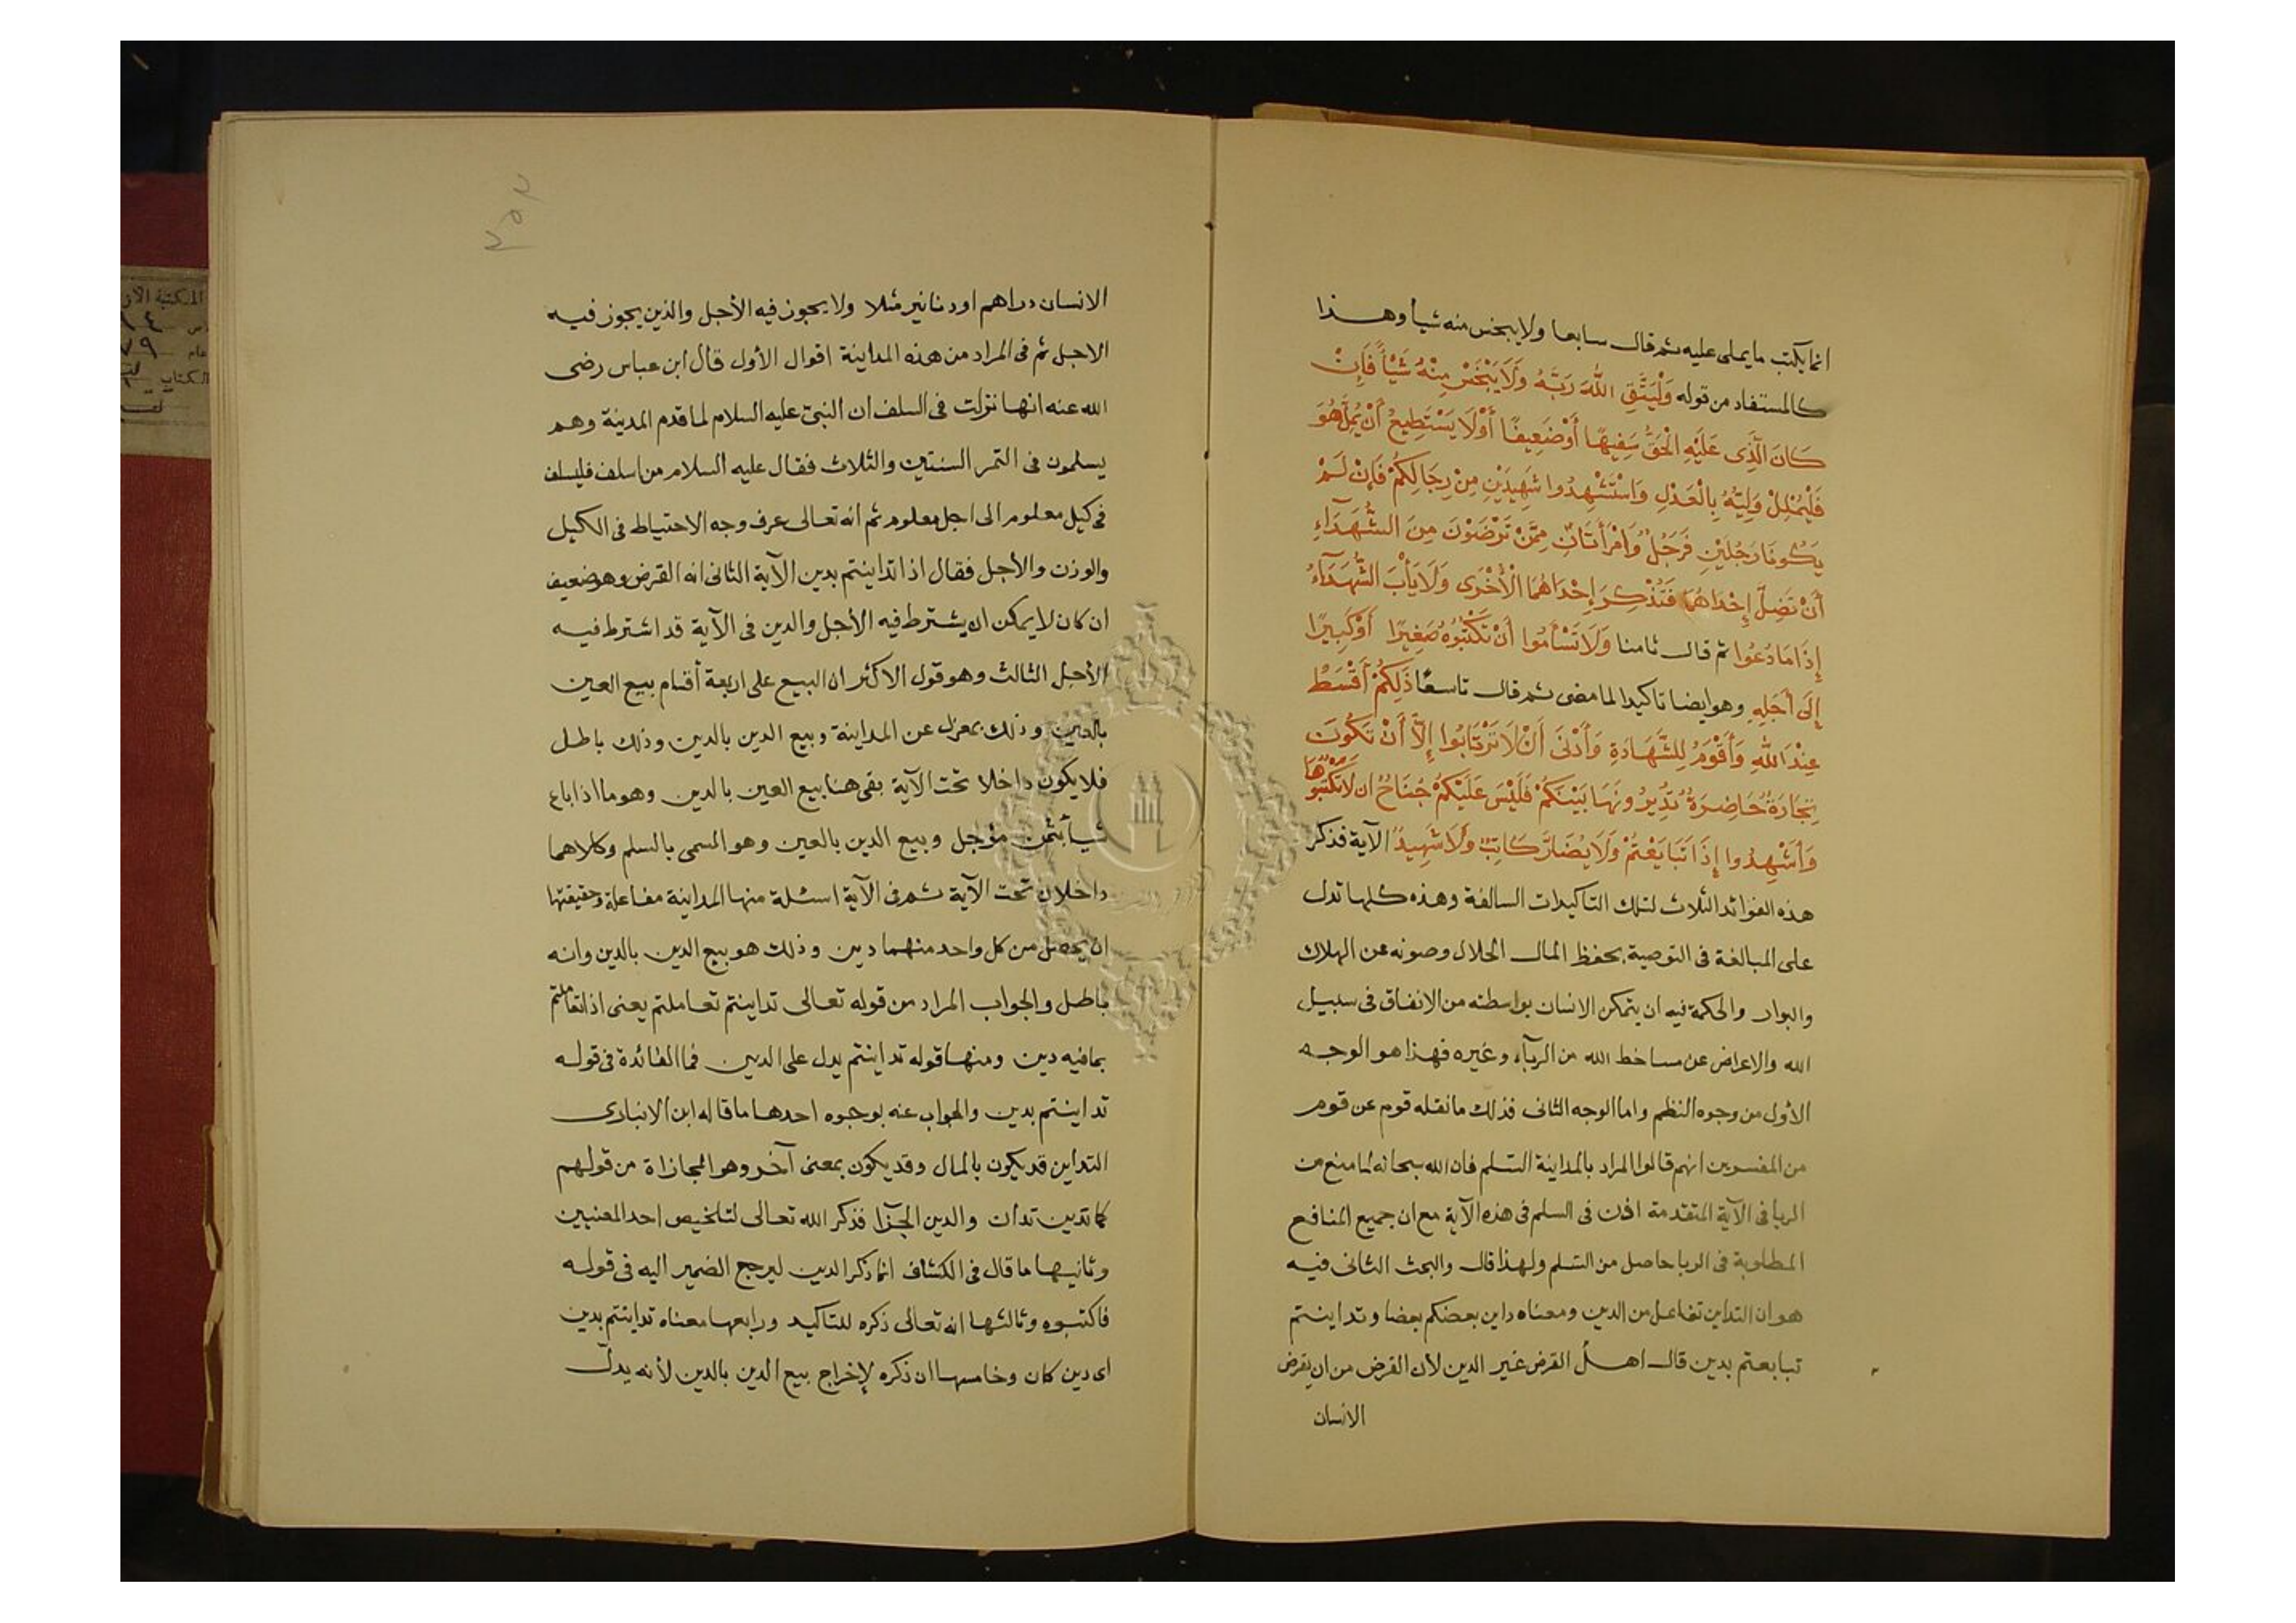 انما يكتب ما يملى عليه ثم قال سابعا ولا يبخس منه شيأ وهذا
كالمستفاد من قوله وَلْيَتَّقِ اللهَ رَبَّهُ وَلَا يَبْخَسْ مِنْهُ شَيْأً فَإِنْ
كَانَ الَّذِى عَلَيْهِ الْحَقُّ سَفِيهًا أَوْ ضَعِيفًا أَوْ لَا يَسْتَطِيعُ أَنْ يُمِلَّ هُوَ
فَلْيُمْلِلْ وَلِيُّهُ بِالْعَدْلِ وَاسْتَشْهِدُوا شَهِيدَيْنِ مِنْ رِجَالِكُمْ فَإِنْ لَمْ
يَكُونَا رَجُلَيْنِ فَرَجُلٌ وَامْرَأَتَانِ مِمَّنْ تَرْضَوْنَ مِنَ الشُّهَدَآءِ
أَنْ تَضِلَّ إِحْدَاهُمَا فَتُذْكِرَ إِحْدَاهُمَا الْأُخْرَى وَلَا يَأْبَ الشُّهَدَآءُ
إِذَا مَا دُعُوا ثم قال ثامنا وَلَا تَسْأَمُوا أَنْ تَكْتُبُوهُ صَغِيرًا أَوْ كَبِيرًا
إِلَى أَجَلِهِ وهو ايضا تاكيد لما مضى ثم قال تاسعًا ذَلِكُمْ أَقْسَطُ
عِنْدَ اللهِ وَأَقْوَمُ لِلشَّهَادَةِ وَأَدْنَى أَنْ لَا تَرْتَابُوا إِلَّا أَنْ تَكُونَ
تِجَارَةً حَاضِرَةً تُدِيرُونَهَا بَيْنَكُمْ فَلَيْسَ عَلَيْكُمْ جُنَاحٌ ان لَا تَكْتُبُوهَا
وَأَشْهِدُوا إِذَا تَبَايَعْتُمْ وَلَا يُضَارَّ كَاتِبٌ وَلَا شَهِيدٌ الآية فذكر
هذه الفوائد الثلاث لتلك التاكيدات السالفة وهذه كلها تدل
على المبالغة فى التوصية بحفظ المال الحلال وصونه عن الهلاك
والبوار والحكمة فيه ان يتمكن الانسان بواسطته من الانفاق فى سبيل
الله والاعراض عن مساخط الله من الريآء وغيره فهذا هو الوجه
الأول من وجوه النظم واما الوجه الثانى فذلك ما نقله قوم عن قوم
من المفسرين انهم قالوا المراد بالمداينة السلم فان الله سبحانه لما منع من
الربا فى الآية المتقدمة اذن فى السلم فى هذه الآية مع ان جميع المنافع
المطلوبة فى الربا حاصل من السلم ولهذا قال والبحث الثانى فيه
هو ان التداين تفاعل من الدين ومعناه داين بعضكم بعضا وتداينتم
تبايعتم بدين قال اهل القرض غير الدين لأن القرض من ان يقرض
الانسان
الانسان دراهم او دنانير مثلا ولا يجوز فيه الأجل والذين يجوز فيه
الاجل ثم فى المراد من هذه المداينة اقوال الأول قال ابن عباس رضى
الله عنه انها نزلت فى السلف ان النبى عليه السلام لما قدم المدينة وهم
يسلمون فى التمر السنتين والثلاث فقال عليه السلام من اسلف فليسلف
فى كيل معلوم الى اجل معلوم ثم انه تعالى عرف وجه الاحتياط فى الكيل
والوزن والأجل فقال اذا تداينتم بدين الآية الثانى انه القرض وهو ضعيف
ان كان لا يمكن ان يشترط فيه الأجل والدين فى الآية قد اشترط فيه
الأجل الثالث وهو قول الاكثر ان البيع على اربعة أقسام بيع العين
بالعين وذلك بمعزل عن المداينة وبيع الدين بالدين وذلك باطل
فلا يكون داخلا تحت الآية بقى هنا بيع العين بالدين وهو ما اذا باع
شيأ بثمن مؤجل وبيع الدين بالعين وهو المسمى بالسلم وكلاهما
داخلان تحت الآية ثم فى الآية اسئلة منها المداينة مفاعلة وحقيقتها
ان يحصل من كل واحد منهما دين وذلك هو بيع الدين بالدين وانه
باطل والجواب المراد من قوله تعالى تداينتم تعاملتم يعنى اذا تعاملتم
بما فيه دين ومنها قوله تداينتم يدل على الدين فما الفائدة فى قوله
تداينتم بدين والجواب عنه بوجوه احدها ما قاله ابن الانبارى
التداين قد يكون بالمال وقد يكون بمعنى آخر وهو المجازاة من قولهم
كما تدين تدان والدين الجزا فذكر الله تعالى لتلخيص احد المعنيين
وثانيها ما قال فى الكشاف انما ذكر الدين ليرجع الضمير اليه فى قوله
فاكتبوه وثالثها انه تعالى ذكره للتاكيد ورابعها معناه تداينتم بدين
اى دين كان وخامسها ان ذكره لإخراج بيع الدين بالدين لأنه يدلّ